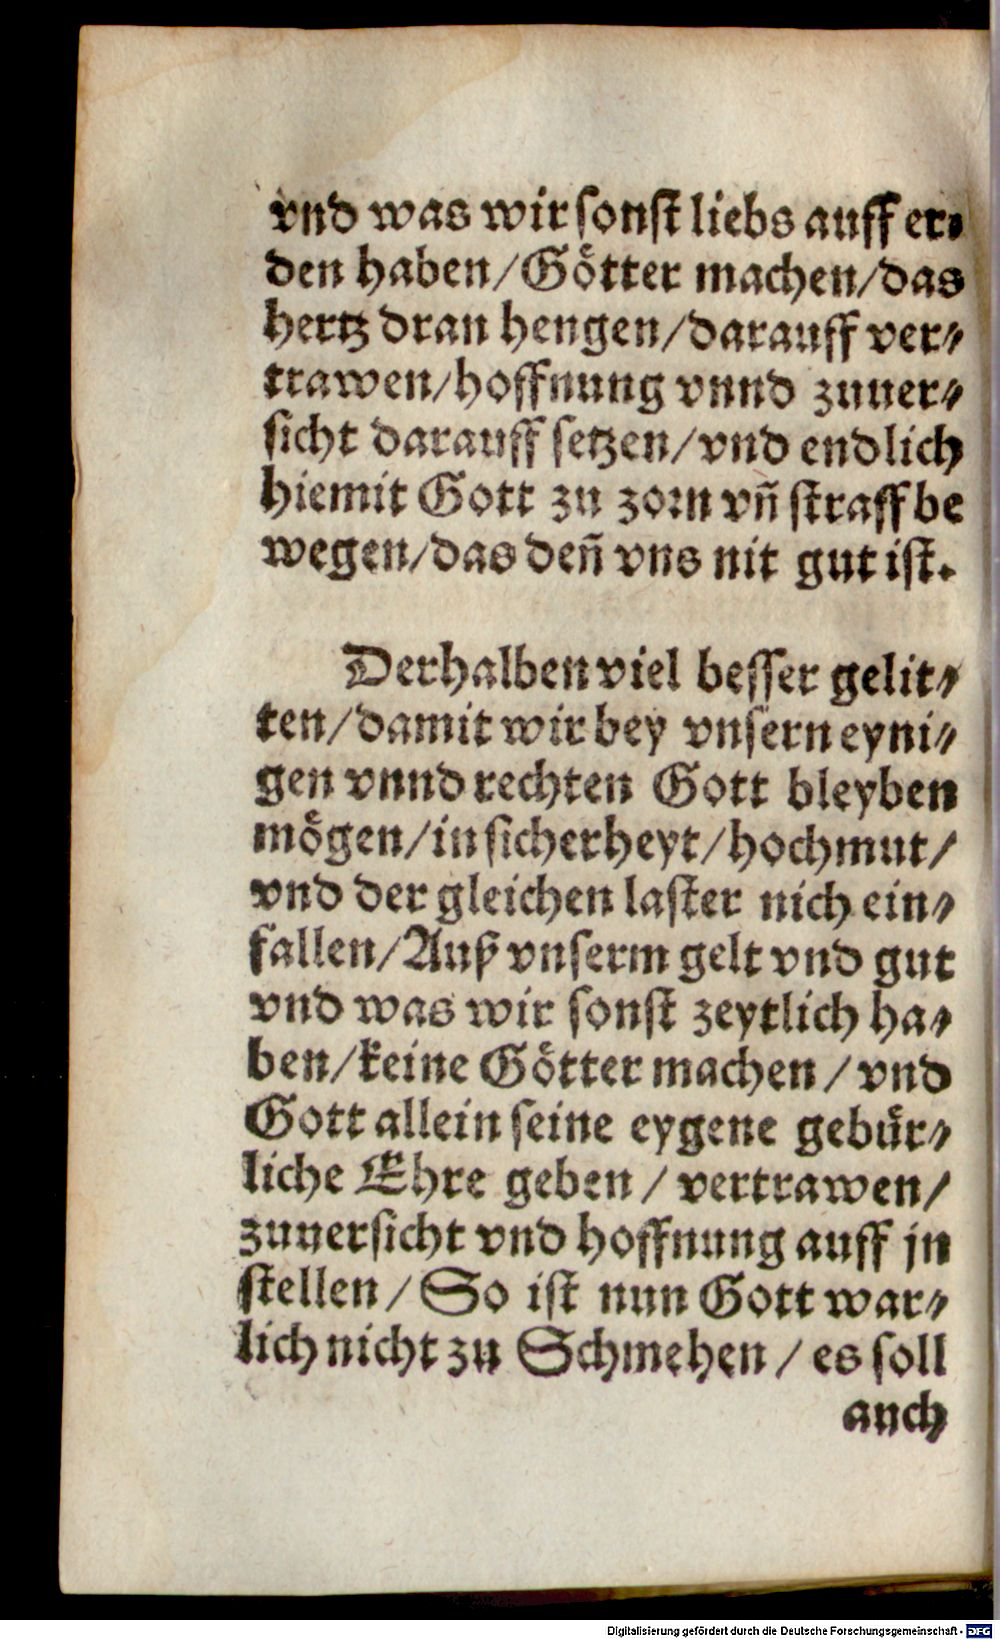 vnd was wir sonst liebs auff er⸗
den haben/Götter machen/das
hertz dran hengen/darauff ver⸗
trawen/hoffnung vnnd zuuer⸗
sicht darauff setzen/vnd endlich
hiemit Gott zu zorn vñ straff be
wegen/das deñ vns nit gut ist.
Derhalben viel besser gelit⸗
ten/damit wir bey vnsern eyni⸗
gen vnnd rechten Gott bleyben
mögen/in sicherheyt/hochmut/
vnd der gleichen laster nich ein⸗
fallen/Auß vnserm gelt vnd gut
vnd was wir sonst zeytlich ha⸗
ben/keine Götter machen/vnd
Gott allein seine eygene gebür⸗
liche Ehre geben/vertrawen/
zuuersicht vnd hoffnung auff jn
stellen/So ist nun Gott war⸗
lich nicht zu Schmehen/es soll
auch
Digitalisierung gefördert durch die Deutsche Forschungsgemeinschaft - DFG